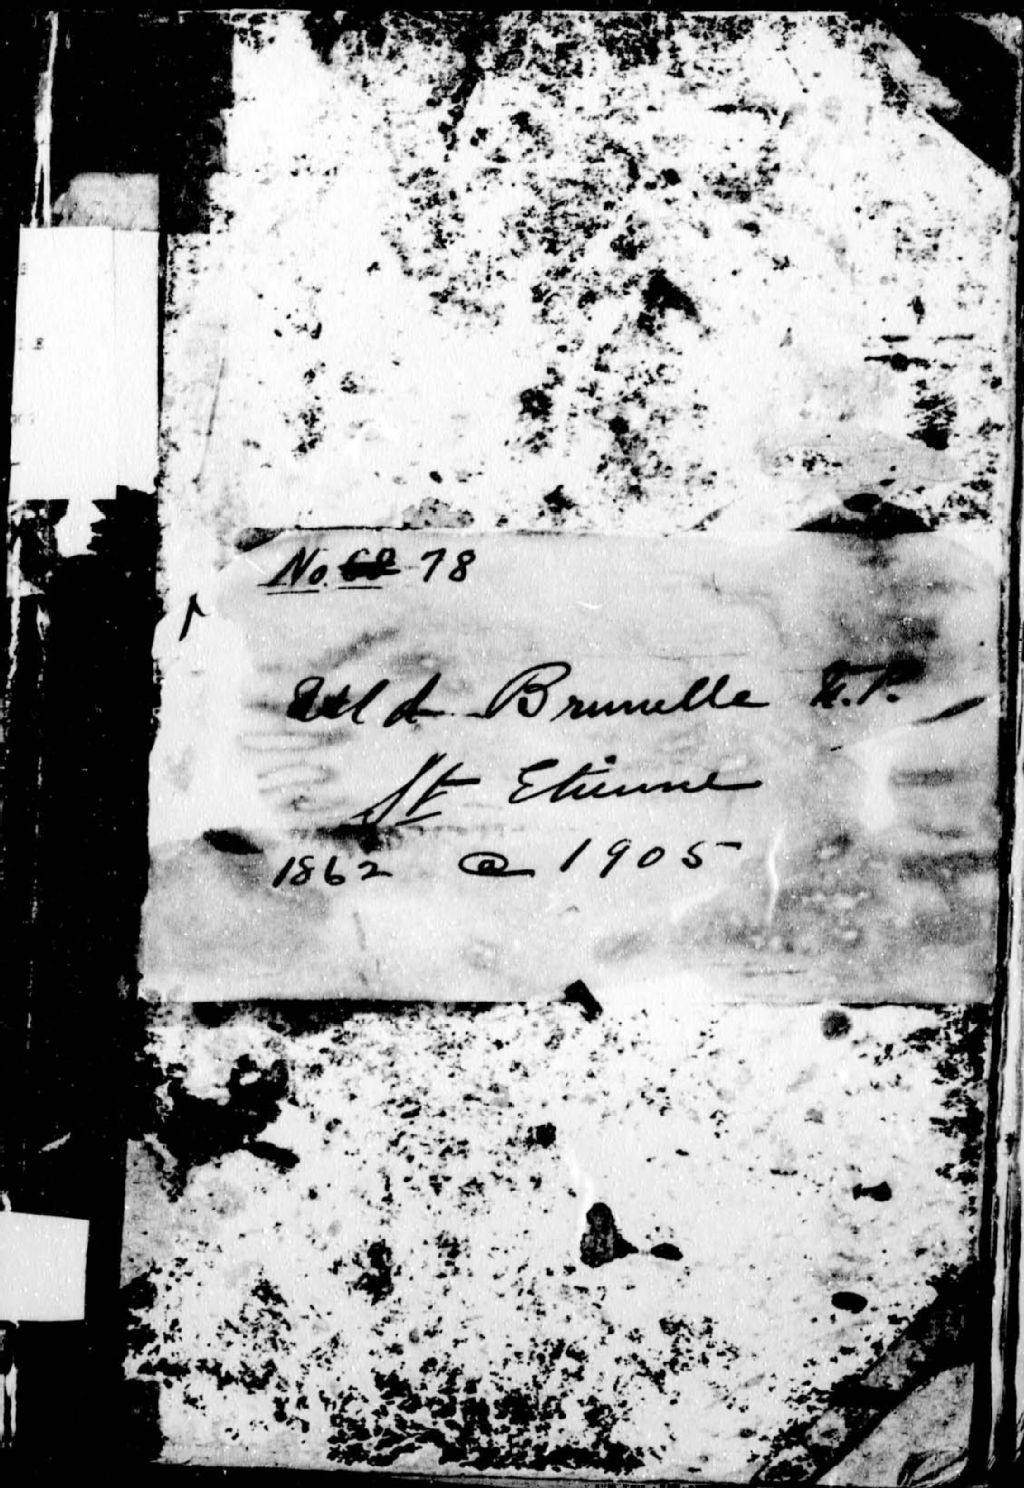 No. 78
Brunelle N.P.
St Etienne
1862 @ 1905